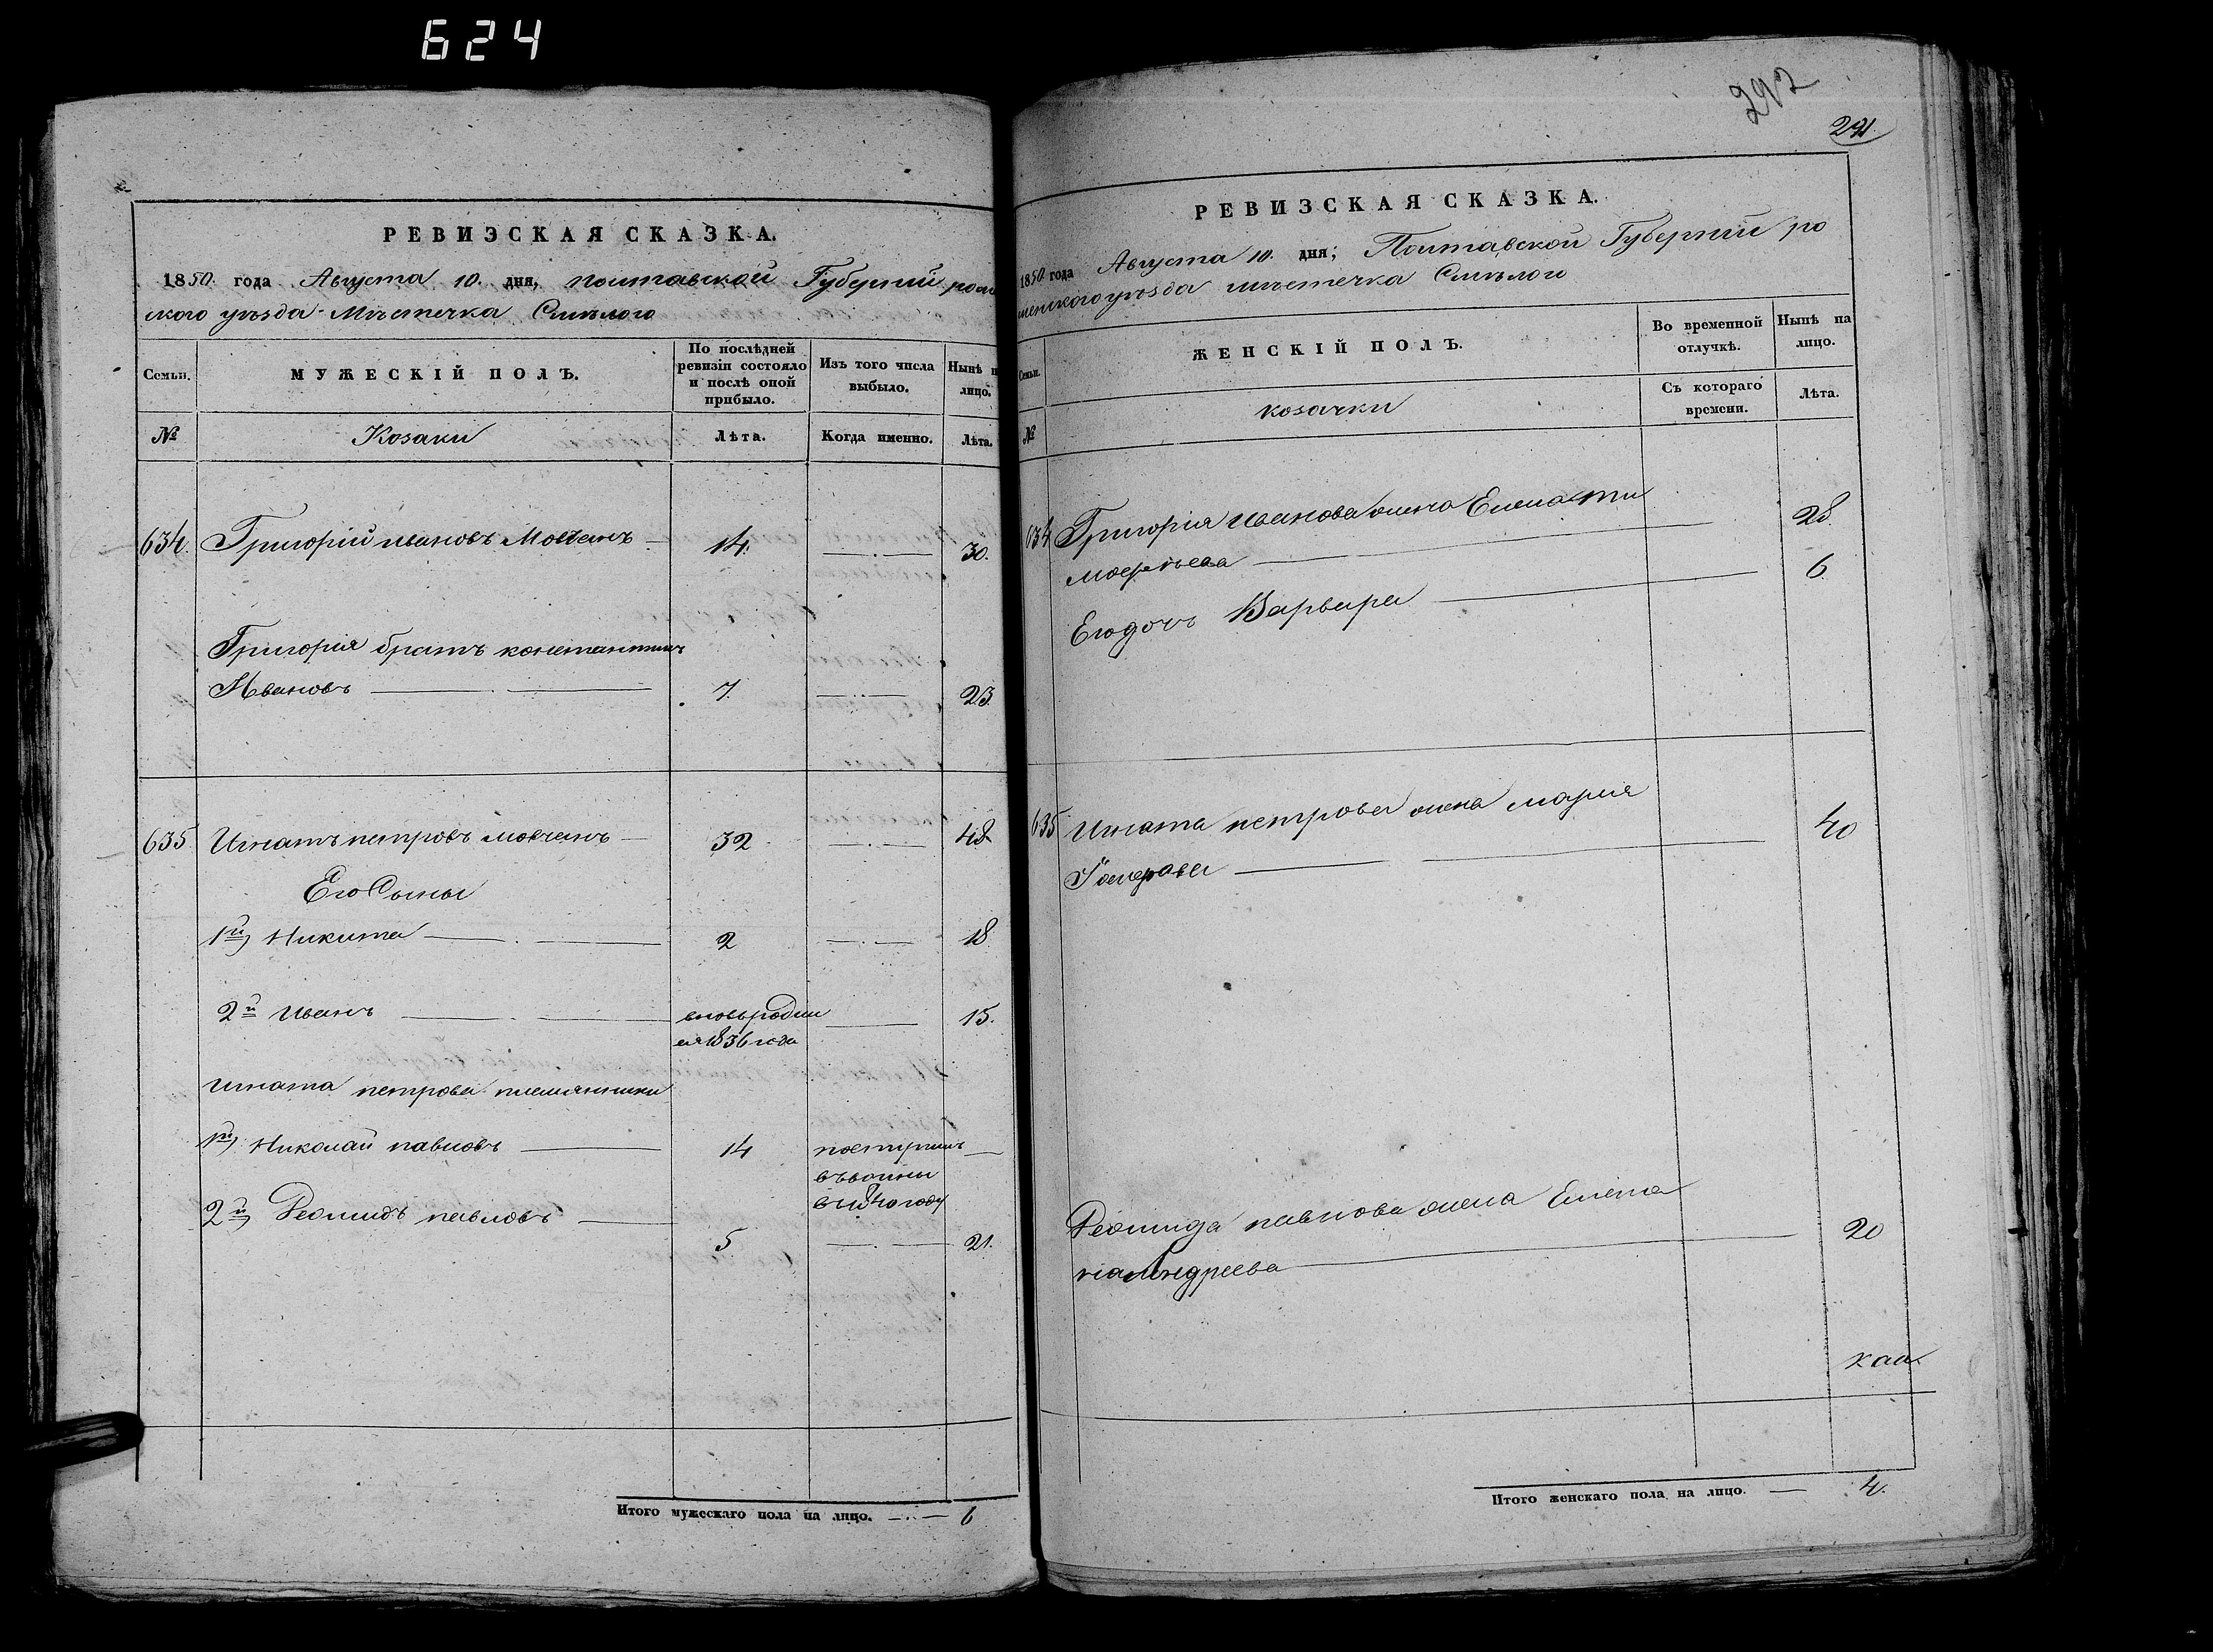 624
РЕВИЗСКАЯ СКАЗКА.
1850. года Августа 10. дня, полтавской Губерній ромен
ского уѣзда Мѣстечка Смѣлого
Семьи.
МУЖЕСКІЙ ПОЛЪ.
По послѣдней ревизіи состояло и послѣ оной прибыло.
Изъ того числа выбыло.
Нынѣ н лицо.
№
Козаки
Лѣта.
Когда именно.
Лѣта.
634. Григорій ивановъ Мовчанъ 14. 30.
Григорія братъ константинъ
Ивановъ 7. 23.
635 Игнатъ петровъ мовчанъ 32 48
Его Сыны
1й Никита 2 18
2й Иванъ вновьродил 15.
ся 1836 года
игната петрова племянники
1й Николай павловъ 14 поступилъ
въ
в 1840 году
2й Леонидъ павловъ
5 21.
Итого мужескаго пола на лицо. 6
292
291.
РЕВИЗСКАЯ СКАЗКА.
1850. года Августа 10. дня; Полтавской Губерній ро
менского уѣзда мѣстечка Смѣлого
Семьи.
ЖЕНСКІЙ ПОЛЪ.
Во временной отлучкѣ.
Нынѣ на лицо.
№
козачки
Съ котораго времени.
Лѣта.
634 Григорія Иванова жена 28.
Его дочь Варвара 6.
635 Игната петрова жена мария 40
Леонида павлова жена Елена 20
Андреева
Итого женскаго пола на лицо. 4.